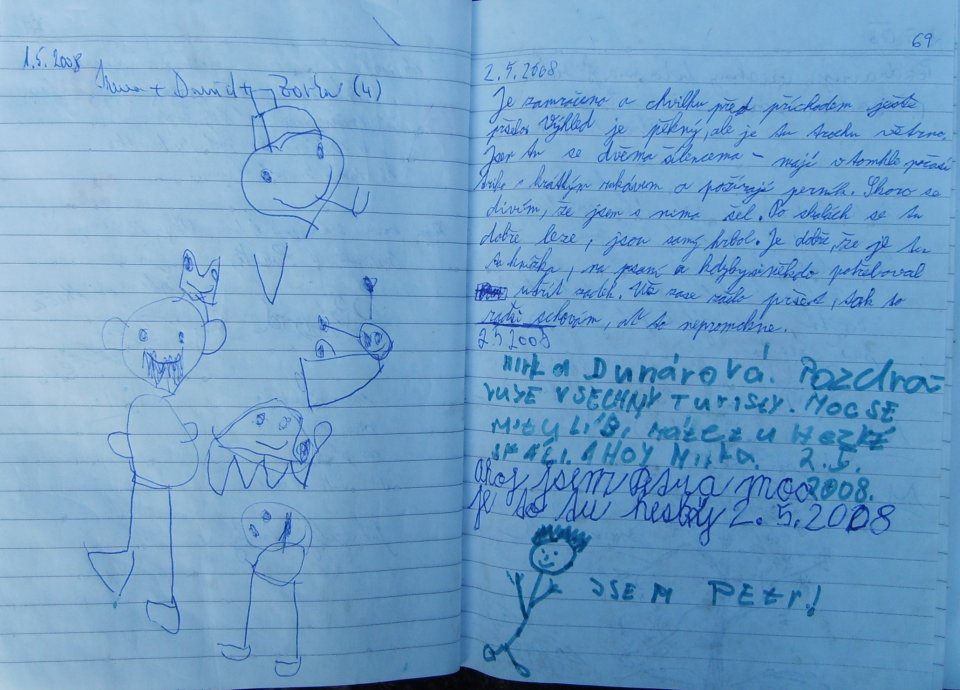 1.5.2008
+ David + (4)
69
2.5.2008
Je zamračeno a chvilku před příchodem ještě
pršelo. Výhled je pěkný, ale je tu trochu větrno.
Jsem tu se dvěma šílencema – mají v tomhle počasí
triko s krátkým rukávem a požírají perník. Skoro se
divím, že jsem s nima šel. Po skalách se tu
dobře leze, jsou samý hrbol. Je dobře, že je tu
ta knížka, na psaní a kdyby si někdo potřeboval
utřít zadek. Už zase začo pršet, tak to
radši schovám, ať to nepromokne.
2.5 2008
Mirka Dunárová. Pozdra
VUJE VŠECHNY TURISTY. MOC SE
MI TU LÍBÍ, HEZKÉ
AHOJ Mirka. 2.5.
2008.
ahoj jsem moc
je to tu heský 2.5.2008
JSEM PEtr!